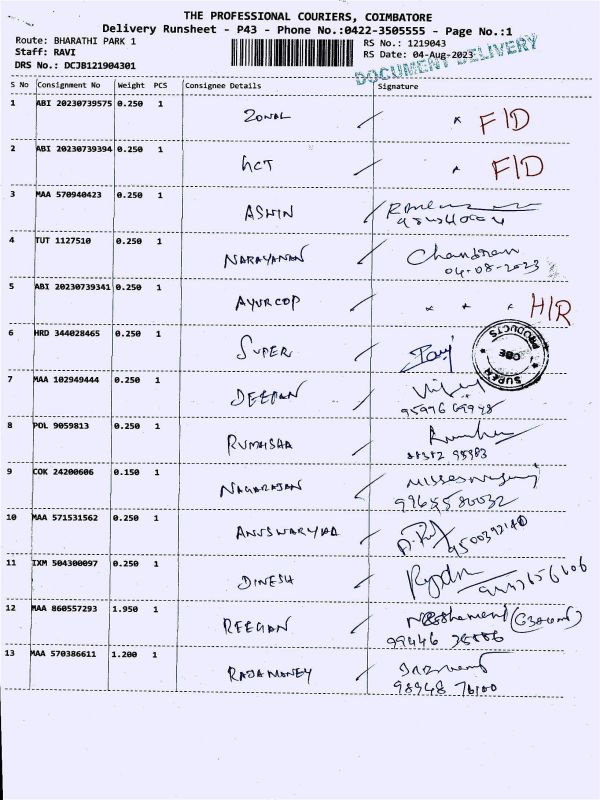 THE PROFESSIONAL COURIERS, COIMBATORE
Delivery Runsheet - P43 - Phone No.:0422-3505555 - Page No.:1
Route: BHARATHI PARK 1
RS No.: 1219043
Staff: RAVI
RS Date: 04-Aug-2023
DRS No.: DCJB121904301
DOCUMENT DELIVERY
S No Consignment No Weight PCS Consignee Details Signature
1 ABI 20230739575 0.250 1 ZONAL F/D
2 ABI 20230739394 0.250 1 GCT F/D
3 MAA 570940423 0.250 1 ASWIN
4 TUT 1127510 0.250 1 NARAYANAN Chandran
04-08-2023
5 ABI 20230739341 0.250 1 AYURCOP H/R
6 HRD 344028465 0.250 1 SUPER
SUPER PRODUCTS CBE
7 MAA 102949444 0.250 1 DEEPAN
8 POL 9059813 0.250 1 RUMAISHA
9 COK 24200606 0.150 1 NAGARAJAN
9965580032
10 MAA 571531562 0.250 1
11 IXM 504300097 0.250 1 DINESH
12 MAA 860557293 1.950 1 REEGAN
13 MAA 570386611 1.200 1 RAJAMONEY
98948 76100